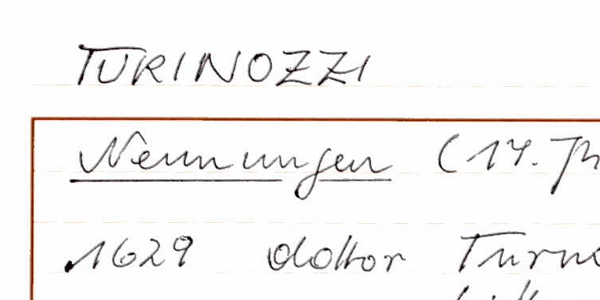 TURINOZZI
Nennungen (17. Jh
1629 doktor Turno